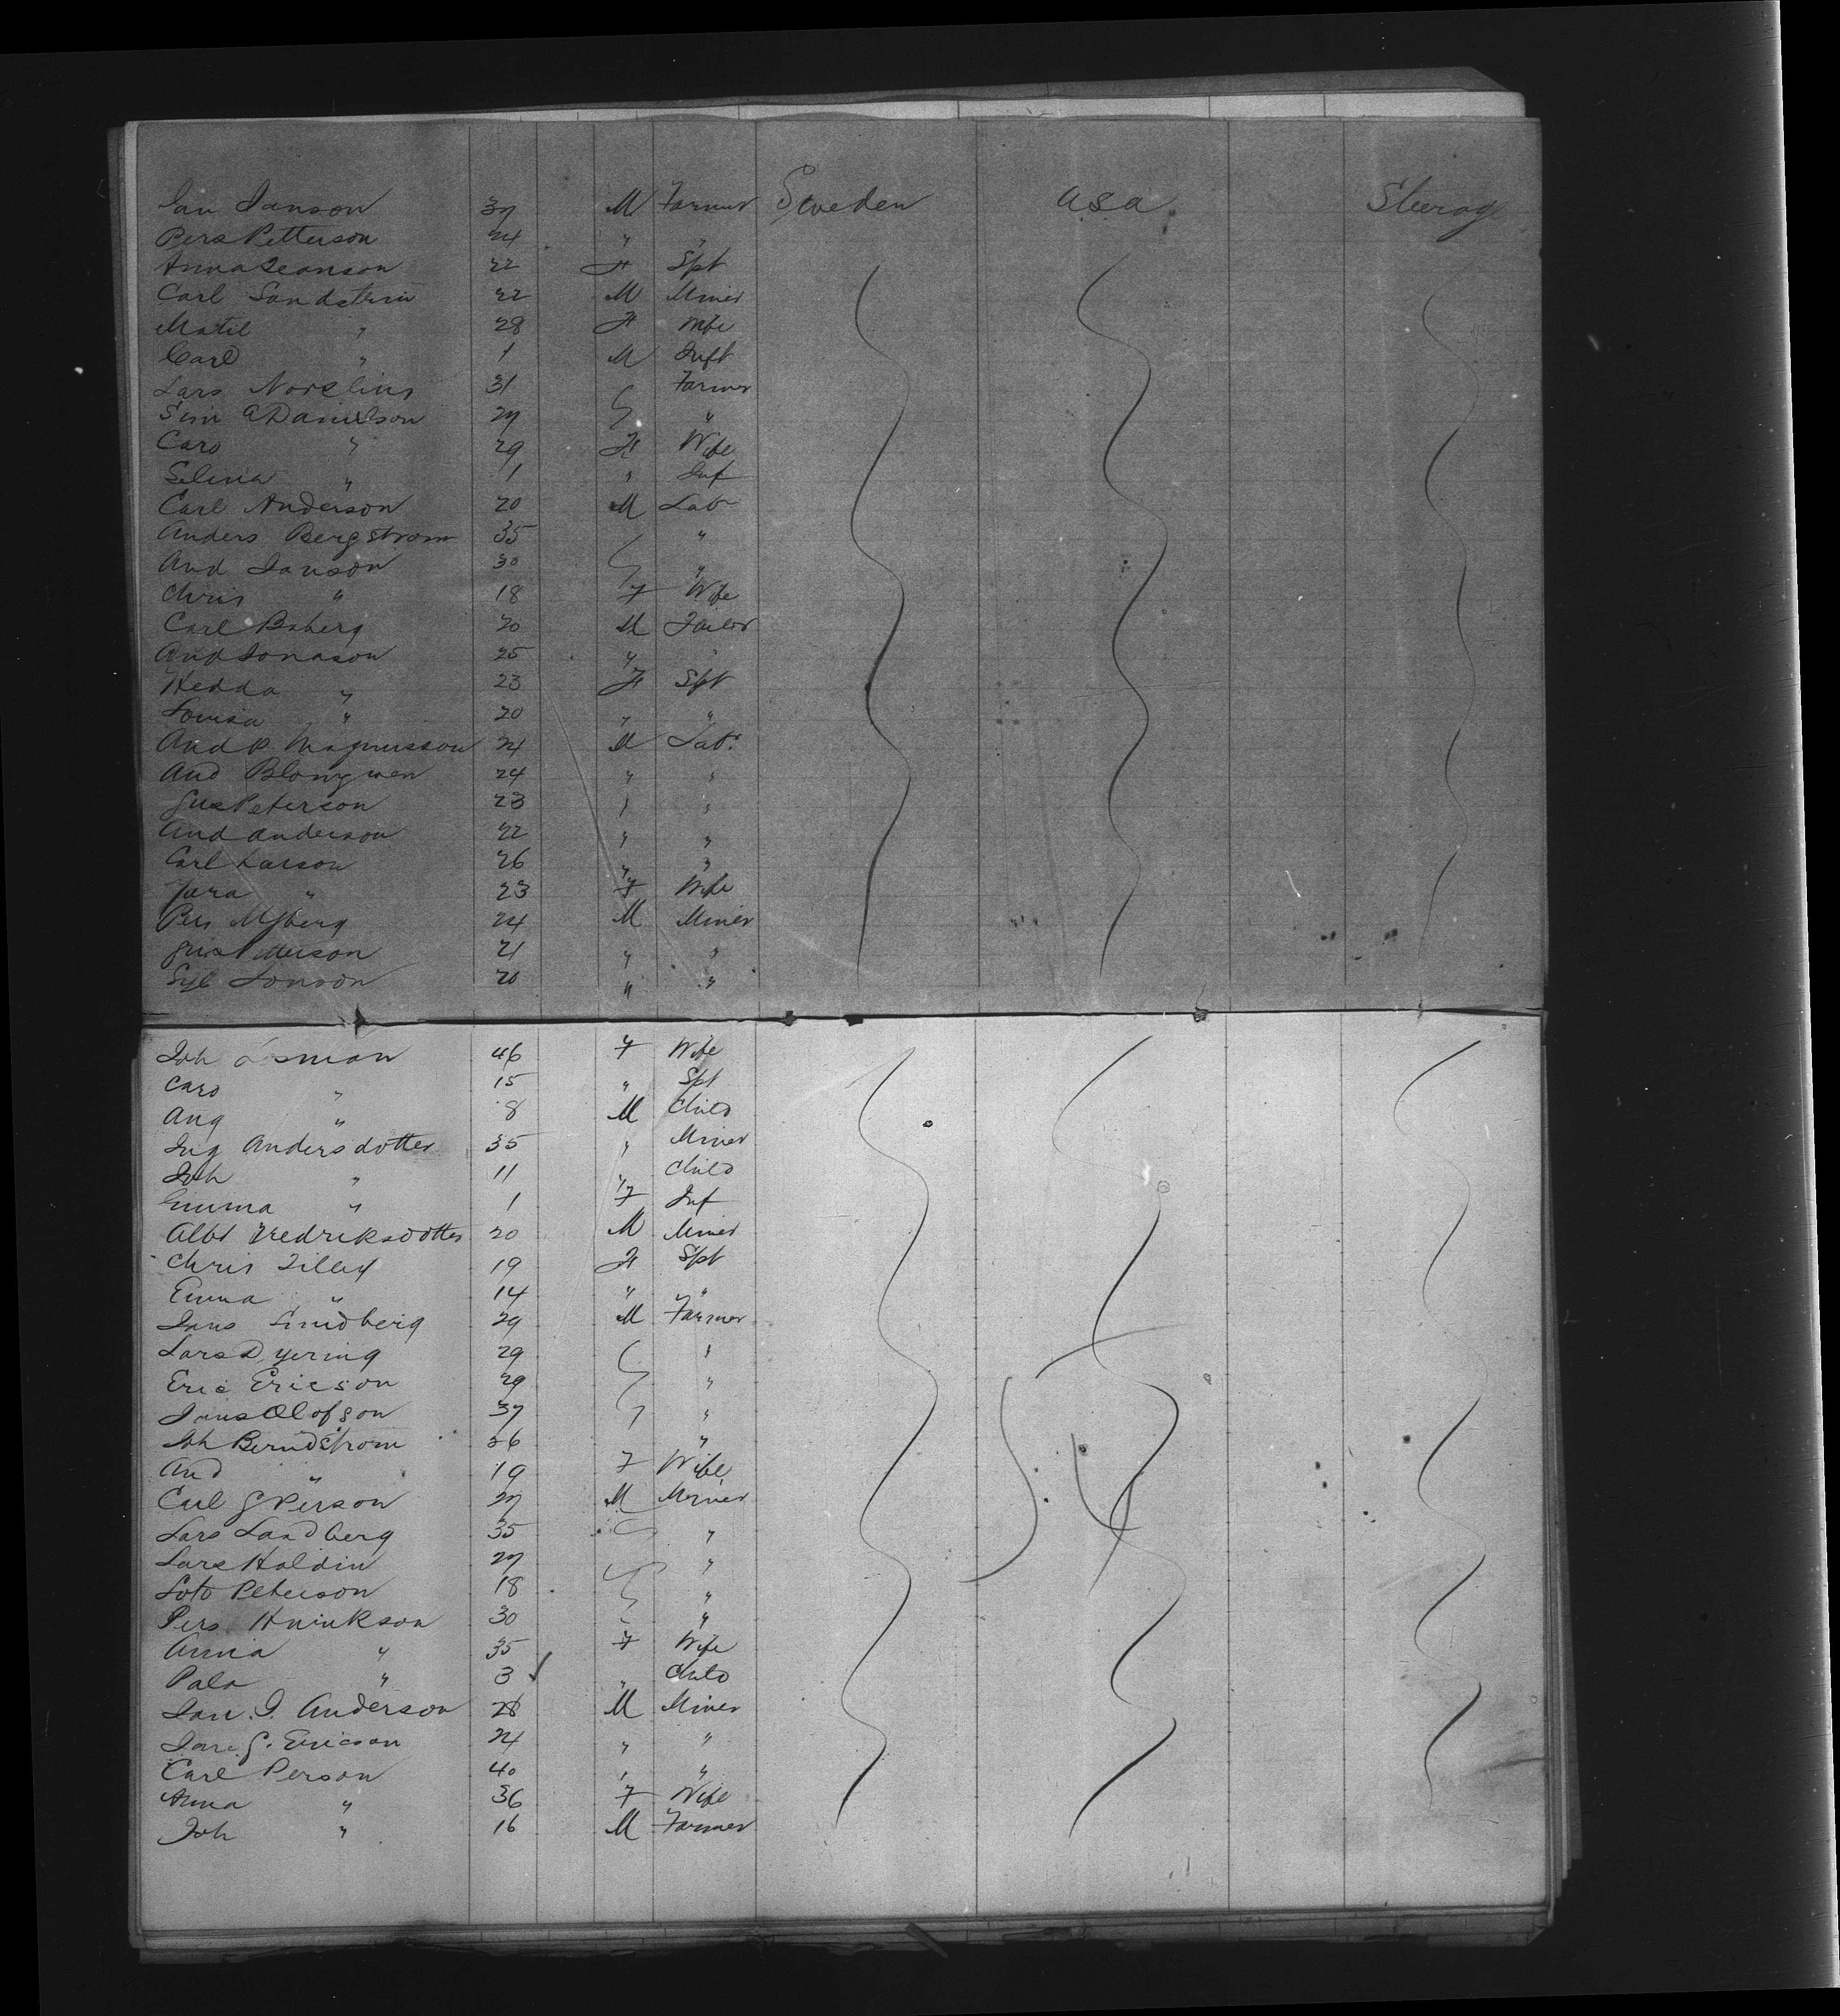 Jan Janson 37 M Farmer Sweden USA Steerage
Pers Petterson 24 " "
Anna Jeanson 22 F Spt
Carl Sandstrin 22 M Miner
Matil " 28 F Wife
Carl " 1 M Inft
Lars Norelius 31 Farmer
Sim G Danielson 27 "
Caro " 29 F Wife
Selina " 1 " Inf
Carl Anderson 20 M Lab
Anders Bergstrom 35 "
And Janson 30 "
Chris " 18 F Wife
Carl Boberg 20 M Tailor
And Jonason 25 " "
Hedda " 23 F Spt
Louisa " 20 " "
And P Magnusson 24 M Labr
And Blongwen 24 " "
Gus Peterson 23 " "
And Anderson 22 " "
Carl Larson 26 " "
" 23 F Wife
Pers Myberg 24 M Miner
Gus Petterson 21 " "
Syl Jonson 20 " "
Joh Osman 46 F Wife
Caro " 15 " Spt
Aug " 8 M Child
Ing Andersdotter 35 " Miner
Joh " 11 " Child
Emma " 1 F Inf
Albt Fredriksdotter 20 M Miner
Chris Lilley 19 F Spt
Emma " 14 " "
Jans Lindberg 29 M Farmer
Lars D yering 29 "
Eric Ericson 29 "
Jans Olofson 37 "
Joh Berndstrom 26 "
And " 19 F Wife
Carl G Person 27 M Miner
Lars Landberg 35 "
Lars Haldin 27 "
Soto Peterson 18 "
Pers Hninkson 30 " "
Anna " 35 F Wife
Pala " 3 " Child
Jan J. Anderson 28 M Miner
G. Ericson 24 " "
Carl Person 40 " "
Anna " 36 F Wife
Joh " 16 M Farmer